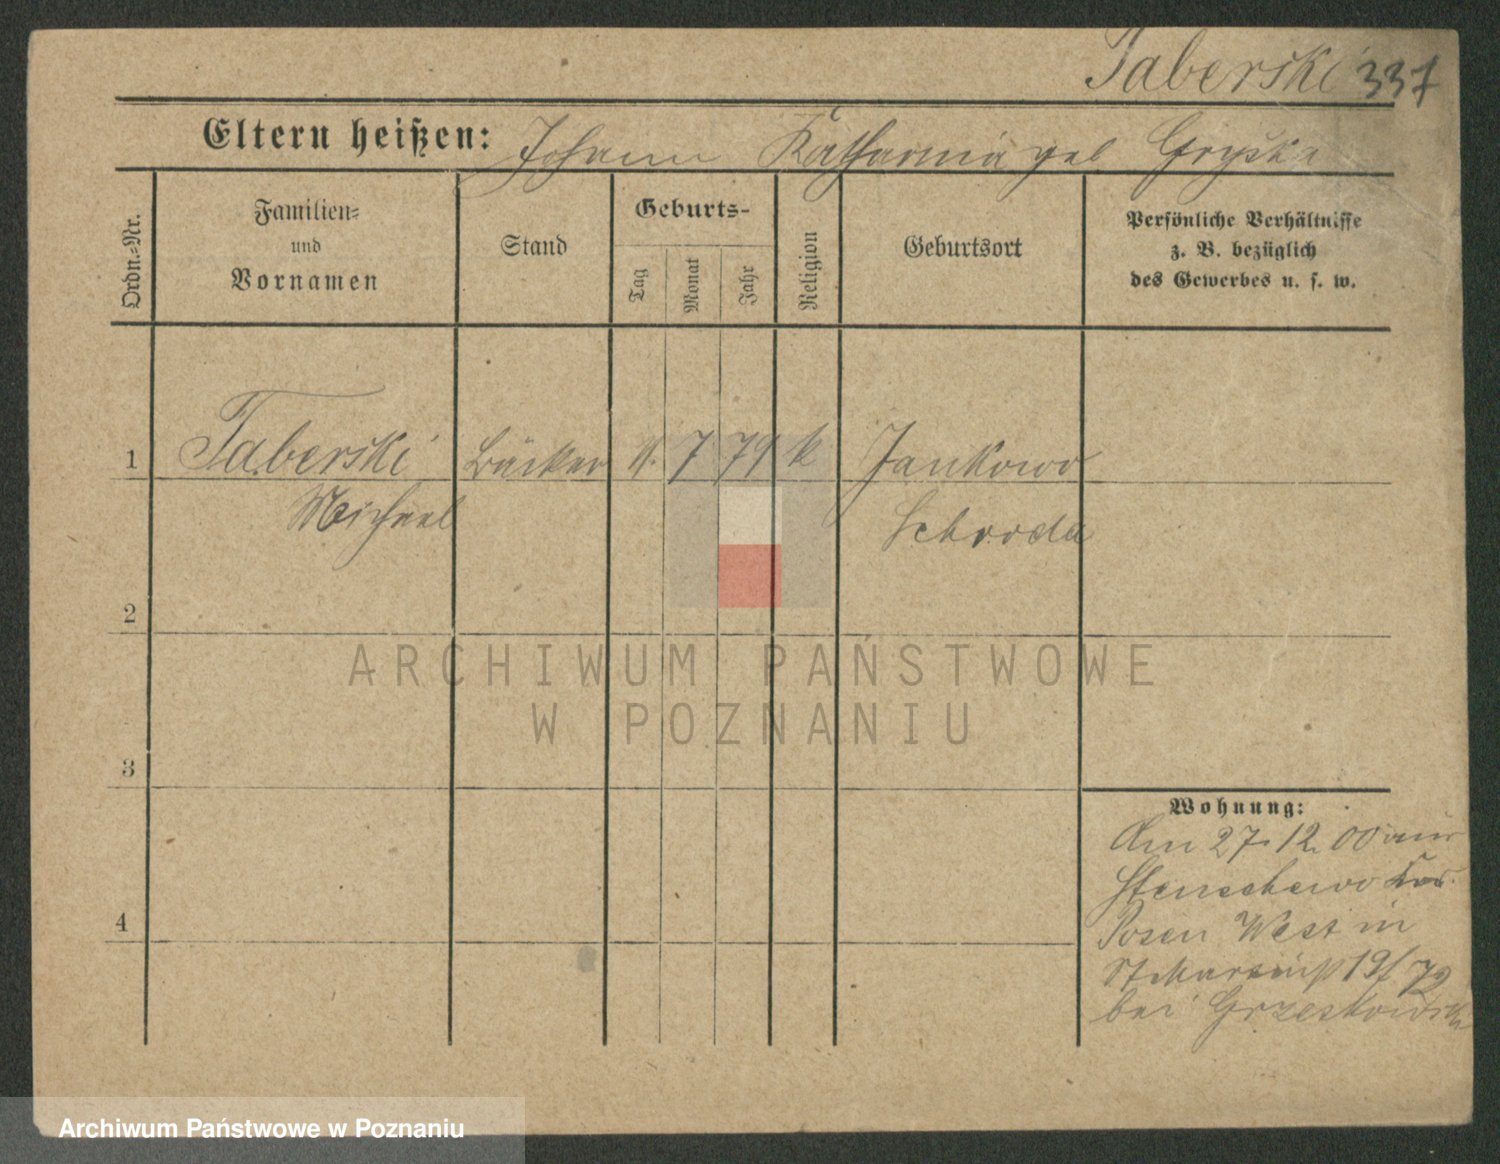 Taberski 337
Eltern heißen: Johann Katharina geb Gryska
Ordn.-Nr.
Familien-
und
Vornamen
Stand
Geburts-
Tag
Monat
Jahr
Religion
Geburtsort
Persönliche Verhältnisse
z. B. bezüglich
des Gewerbes u. s. w.
1 Taberski Bäcker 7 79 k Jankowo
Michael Schroda
2
ARCHIWUM PAŃSTWOWE
W POZNANIU
3
Wohnung:
Am 27.12.00 aus
Stenschewo Krs.
Posen West in
19/72
bei Grzeskowiak
4
Archiwum Państwowe w Poznaniu